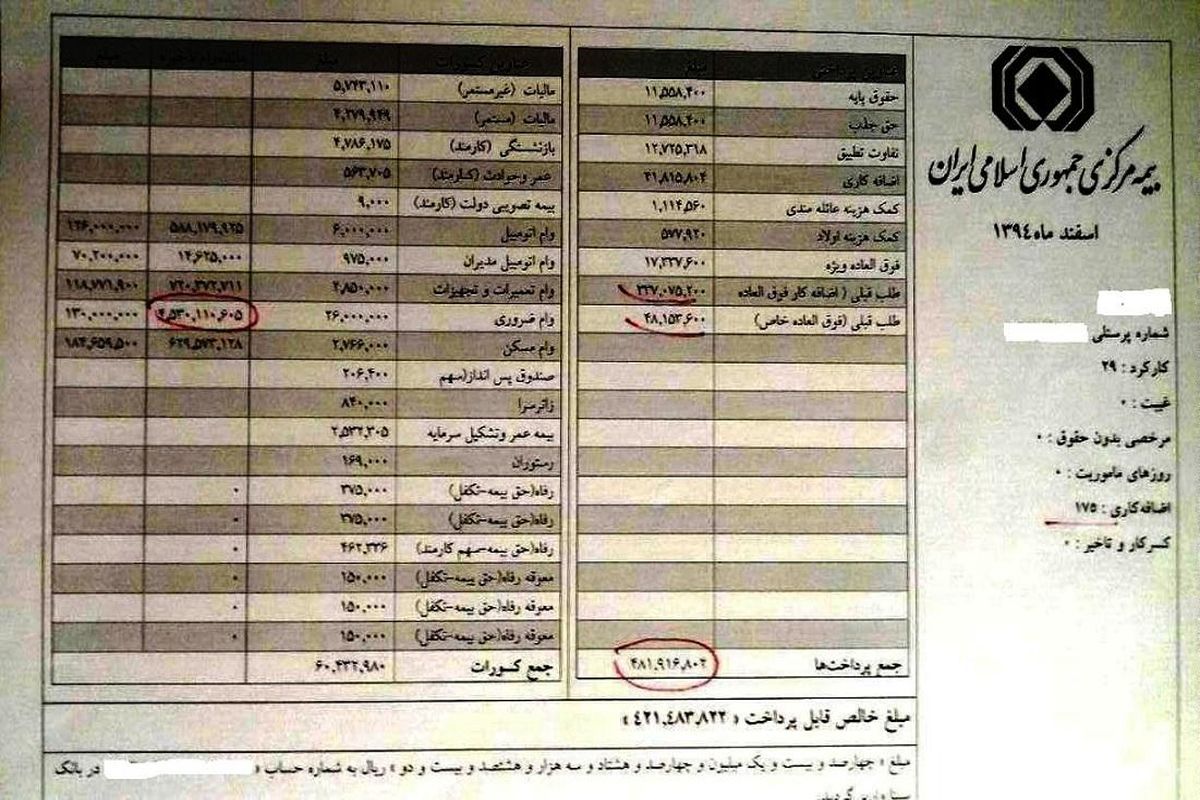 بیمه مرکزی جمهوری اسلامی ایران
اسفند ماه ۱۳۹٤
شماره پرسنلی
کارکرد : ۲۹
غیبت : ۰
مرخصی بدون حقوق : ۰
روزهای ماموریت : ۰
اضافه‌کاری : ۱۷۵
کسرکار و تاخیر : ۰
عناوین پرداختی مبلغ
حقوق پایه ۱۱,۵۵۸,۴۰۰
حق جذب ۱۱,۵۵۸,۴۰۰
تفاوت تطبیق ۱۲,۷۲۵,۳۱۸
اضافه کاری ۴۱,۸۱۵,۸۰۴
کمک هزینه عائله مندی ۱,۱۱۴,۵۶۰
کمک هزینه اولاد ۵۷۷,۹۲۰
فوق العاده ویژه ۱۷,۳۳۷,۶۰۰
طلب قبلی ( اضافه کار فوق العاده ۳۳۷,۰۷۵,۲۰۰
طلب قبلی (فوق العاده خاص) ۴۸,۱۵۳,۶۰۰
جمع پرداخت‌ها ۴۸۱,۹۱۶,۸۰۲
عناوین کسورات مبلغ
مالیات (غیرمستمر) ۵,۷۴۳,۱۱۰
مالیات (مستمر) ۴,۲۷۹,۹۴۹
بازنشستگی (کارمند) ۴,۷۸۶,۱۷۵
عمر و حوادث (کارمند) ۵۶۳,۷۰۵
بیمه تصویبی دولت (کارمند) ۹,۰۰۰
وام اتومبیل ۶,۰۰۰,۰۰۰ ۵۸۸,۱۷۹,۹۲۵ ۱۲۶,۰۰۰,۰۰۰
وام اتومبیل مدیران ۹۷۵,۰۰۰ ۱۴,۶۲۵,۰۰۰ ۷۰,۲۰۰,۰۰۰
وام تعمیرات و تجهیزات ۲,۸۵۰,۰۰۰ ۷۲۰,۳۷۲,۷۱۱ ۱۱۸,۷۷۱,۹۰۰
وام ضروری ۲۶,۰۰۰,۰۰۰ ۴,۵۳۰,۱۱۰,۶۰۵ ۱۳۰,۰۰۰,۰۰۰
وام مسکن ۲,۷۶۶,۰۰۰ ۶۲۹,۵۷۳,۱۲۸ ۱۸۴,۶۵۹,۵۰۰
صندوق پس انداز(سهم ۲۰۶,۴۰۰
زائرسرا ۸۴۰,۰۰۰
بیمه عمر وتشکیل سرمایه ۲,۵۳۲,۳۰۵
رستوران ۱۶۹,۰۰۰
رفاه(حق بیمه-تکفل) ۳۷۵,۰۰۰ ۰
رفاه(حق بیمه-تکفل) ۳۷۵,۰۰۰ ۰
رفاه(حق بیمه-سهم کارمند) ۴۶۲,۳۳۶ ۰
معوقه رفاه(حق بیمه-تکفل) ۱۵۰,۰۰۰ ۰
معوقه رفاه(حق بیمه-تکفل) ۱۵۰,۰۰۰ ۰
معوقه رفاه(حق بیمه-تکفل) ۱۵۰,۰۰۰ ۰
جمع کسورات ۶۰,۴۳۲,۹۸۰
مبلغ خالص قابل پرداخت « ۴۲۱,۴۸۳,۸۲۲ »
مبلغ « چهارصد و بیست و یک میلیون و چهارصد و هشتاد و سه هزار و هشتصد و بیست و دو » ریال به شماره حساب « در بانک